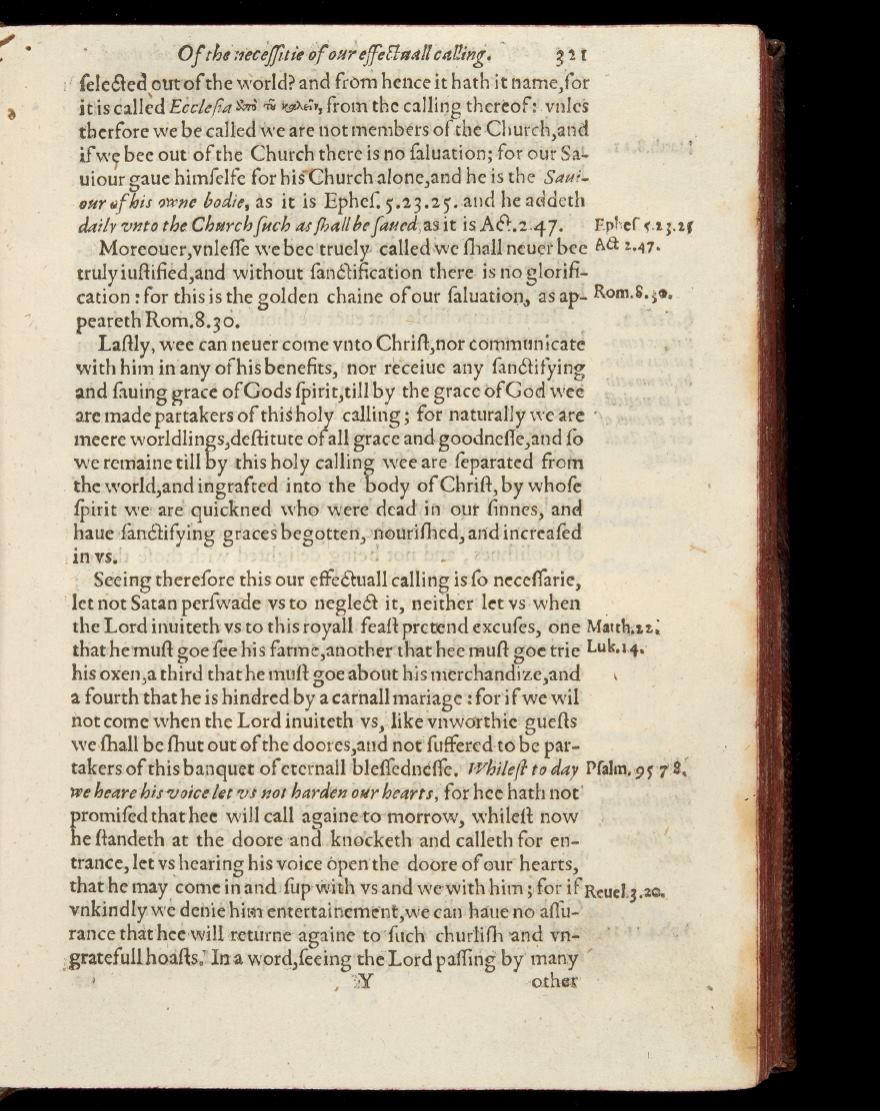 Of the neceſſitie of our effectuall calling. 321
ſelected out of the world? and from hence it hath it name, for
it is called Eccleſia ἀπὸ τοῦ καλεῖν, from the calling thereof: vnles
therfore we be called we are not members of the Church, and
if we bee out of the Church there is no ſaluation; for our Sa-
uiour gaue himſelfe for his Church alone, and he is the Saui-
our of his owne bodie, as it is Epheſ. 5.23.25. and he addeth
daily vnto the Church ſuch as ſhall be ſaued, as it is Act. 2.47.
Epheſ 5.23.25
Moreouer, vnleſſe we bee truely called we ſhall neuer bee
Act 2.47.
truly iuſtified, and without ſanctification there is no glorifi-
cation: for this is the golden chaine of our ſaluation, as ap-
Rom. 8.30.
peareth Rom. 8.30.
Laſtly, wee can neuer come vnto Chriſt, nor communicate
with him in any of his benefits, nor receiue any ſanctifying
and ſauing grace of Gods ſpirit, till by the grace of God wee
are made partakers of this holy calling; for naturally we are
meere worldlings, deſtitute of all grace and goodneſſe, and ſo
we remaine till by this holy calling wee are ſeparated from
the world, and ingrafted into the body of Chriſt, by whoſe
ſpirit we are quickned who were dead in our ſinnes, and
haue ſanctifying graces begotten, nouriſhed, and increaſed
in vs.
Seeing therefore this our effectuall calling is ſo neceſſarie,
let not Satan perſwade vs to neglect it, neither let vs when
the Lord inuiteth vs to this royall feaſt pretend excuſes, one
Matth. 22.
that he muſt goe ſee his farme, another that hee muſt goe trie
Luk. 14.
his oxen, a third that he muſt goe about his merchandize, and
a fourth that he is hindred by a carnall mariage: for if we wil
not come when the Lord inuiteth vs, like vnworthie gueſts
we ſhall be ſhut out of the doores, and not ſuffered to be par-
takers of this banquet of eternall bleſſedneſſe. Whileſt to day
Pſalm. 95 7 8.
we heare his voice let vs not harden our hearts, for hee hath not
promiſed that hee will call againe to morrow, whileſt now
he ſtandeth at the doore and knocketh and calleth for en-
trance, let vs hearing his voice open the doore of our hearts,
that he may come in and ſup with vs and we with him; for if
Reuel. 3.20.
vnkindly we denie him entertainement, we can haue no aſſu-
rance that hee will returne againe to ſuch churliſh and vn-
gratefull hoaſts. In a word, ſeeing the Lord paſſing by many
Y other